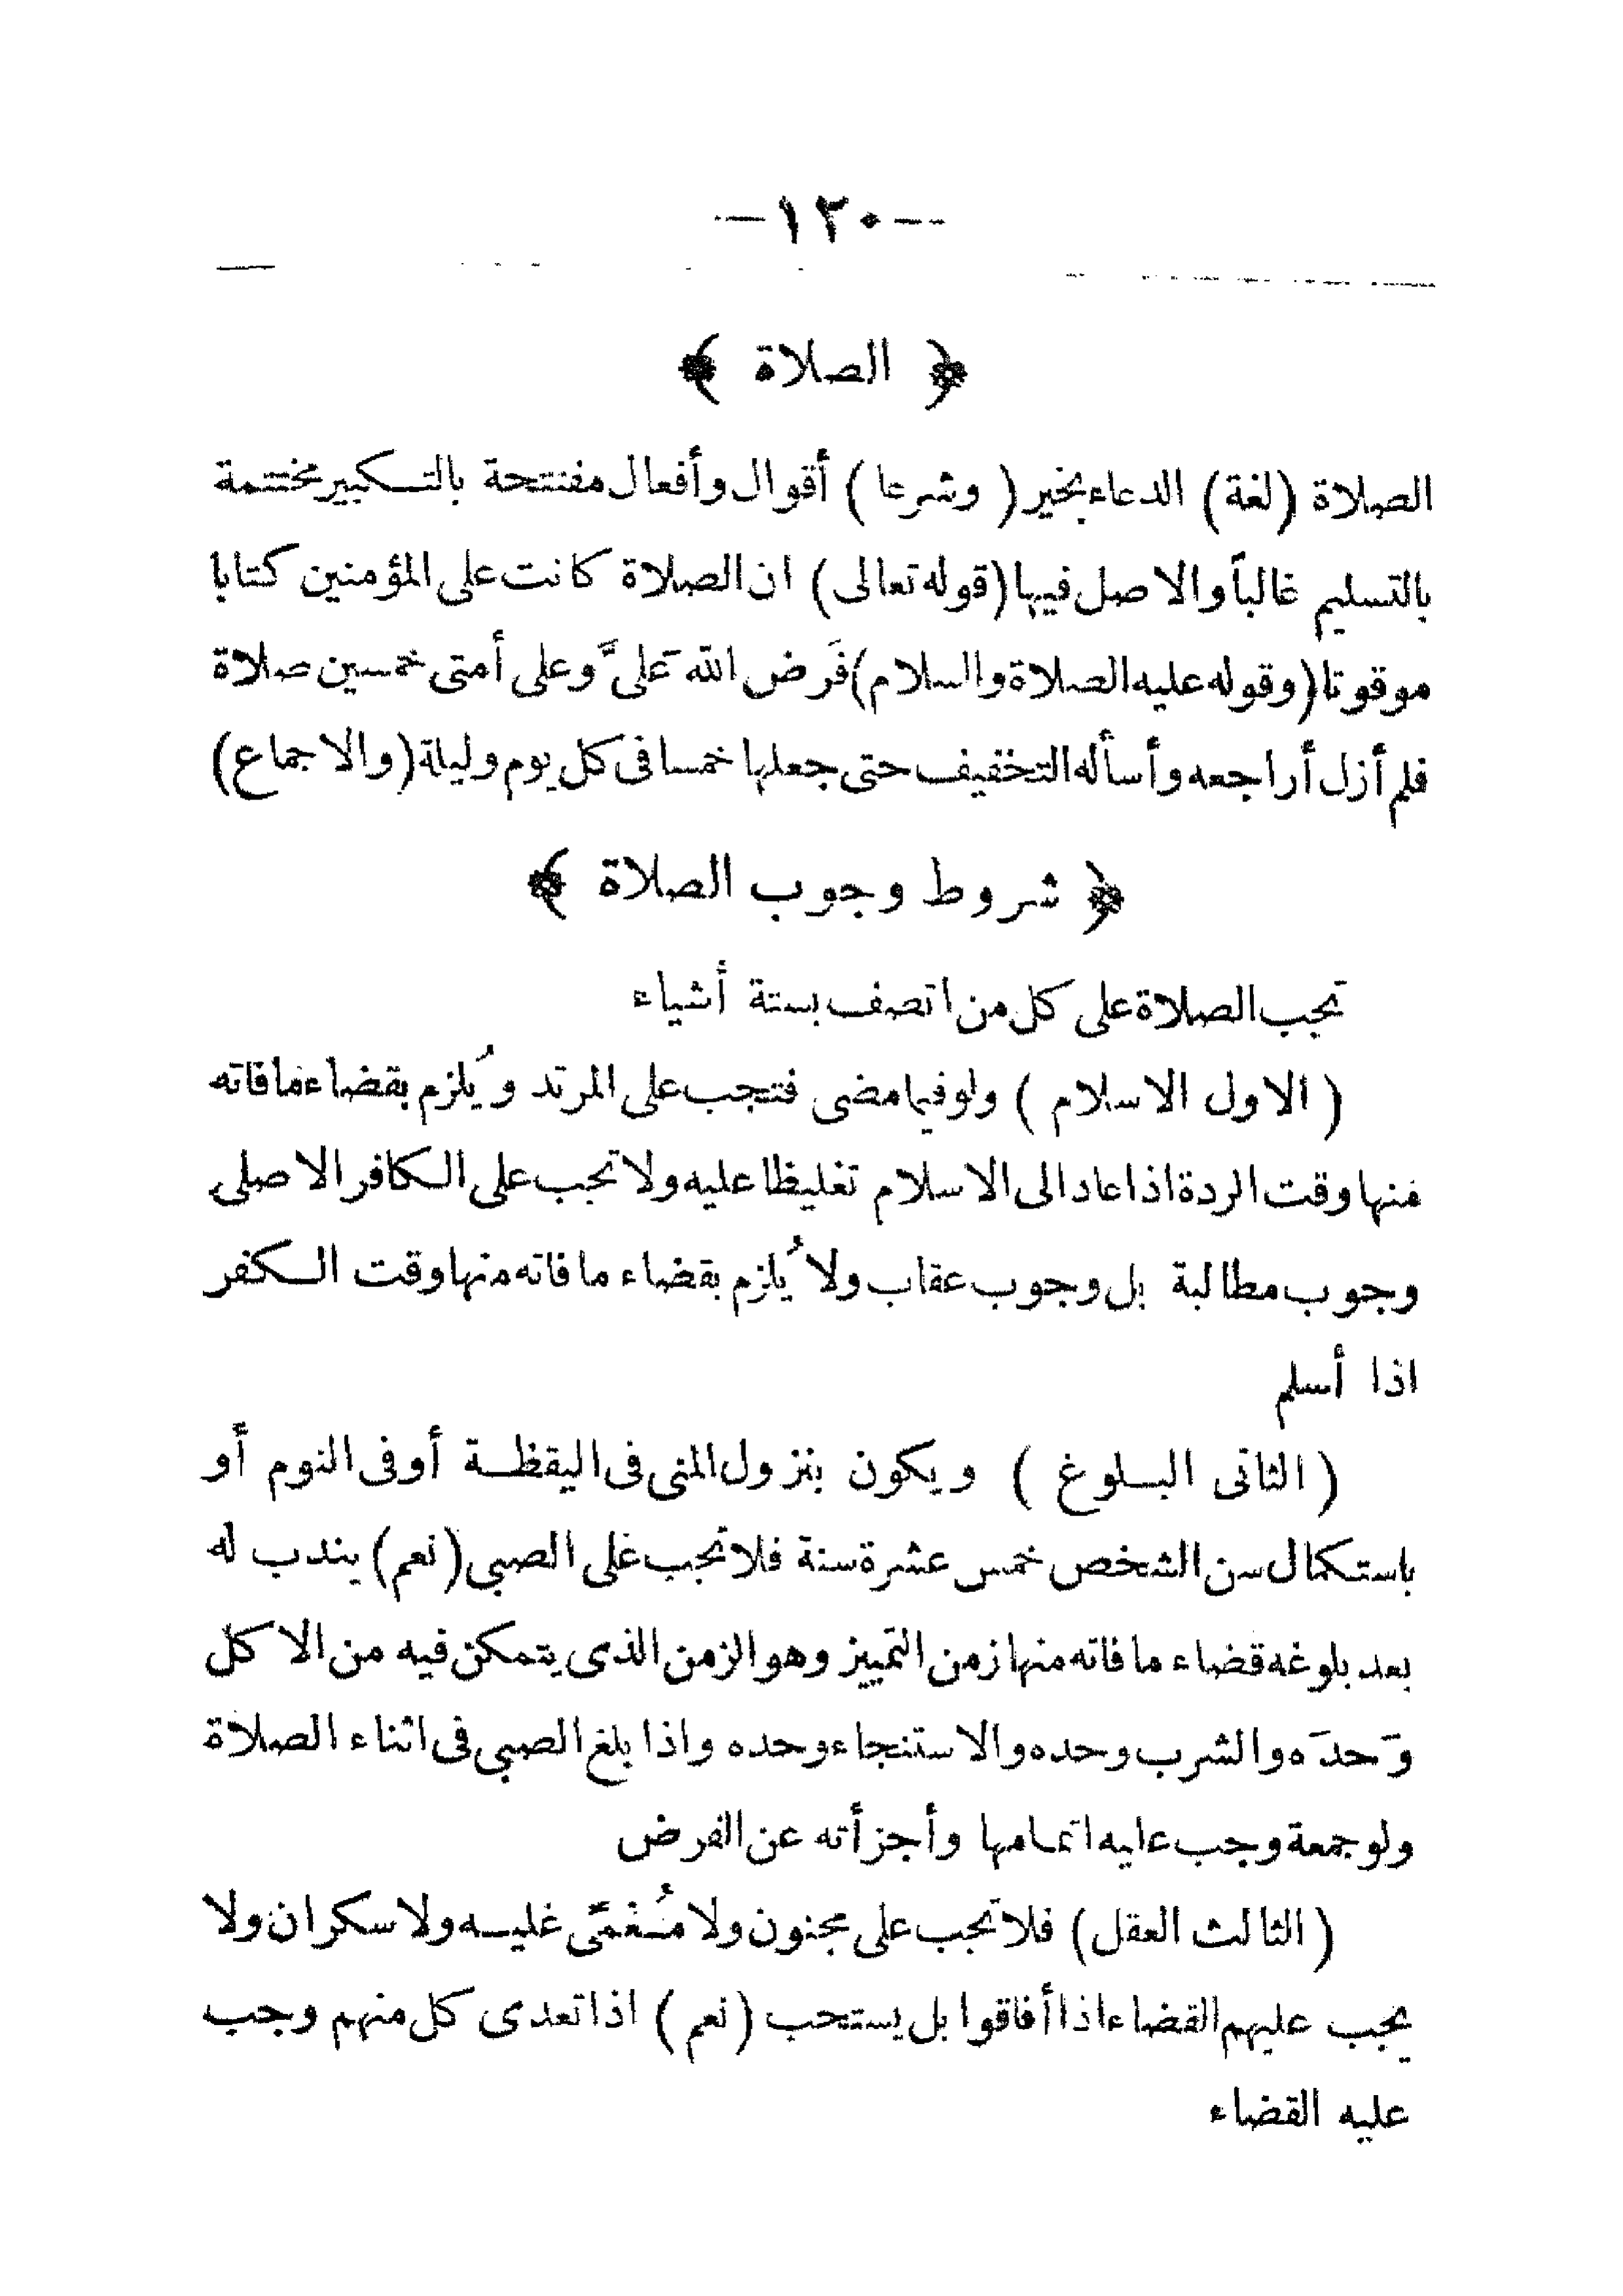 —١٢٠—
﴿ الصلاة ﴾
الصلاة (لغة) الدعاء بخير (وشرعا) أقوال وأفعال مفتتحة بالتكبير مختتمة
بالتسليم غالباً والاصل فيها (قوله تعالى) ان الصلاة كانت على المؤمنين كتابا
موقوتا (وقوله عليه الصلاة والسلام) فَرض الله عَلىَّ وعلى أمتى خمسين صلاة
فلم أزل أراجعه وأسأله التخفيف حتى جعلها خمسا فى كل يوم وليلة (والاجماع)
﴿ شروط وجوب الصلاة ﴾
تجب الصلاة على كل من اتصف بستة أشياء
(الاول الاسلام) ولو فيما مضى فتجب على المرتد ويُلزم بقضاء ما فاته
منها وقت الردة اذا عاد الى الاسلام تغليظا عليه ولا تجب على الكافر الاصلى
وجوب مطالبة بل وجوب عقاب ولا يُلزم بقضاء ما فاته منها وقت الكفر
اذا أسلم
(الثانى البلوغ) ويكون بنزول المنى فى اليقظة أو فى النوم أو
باستكمال سن الشخص خمس عشرة سنة فلا تجب على الصبي (نعم) يندب له
بعد بلوغه قضاء ما فاته منها زمن التمييز وهو الزمن الذى يتمكن فيه من الاكل
وَحدَه والشرب وحده والاستنجاء وحده واذا بلغ الصبي فى اثناء الصلاة
ولو جمعة وجب عليه اتمامها وأجزأته عن الفرض
(الثالث العقل) فلا تجب على مجنون ولا مُغمًى عليه ولا سكران ولا
يجب عليهم القضاء اذا أفاقوا بل يستحب (نعم) اذا تعدى كل منهم وجب
عليه القضاء